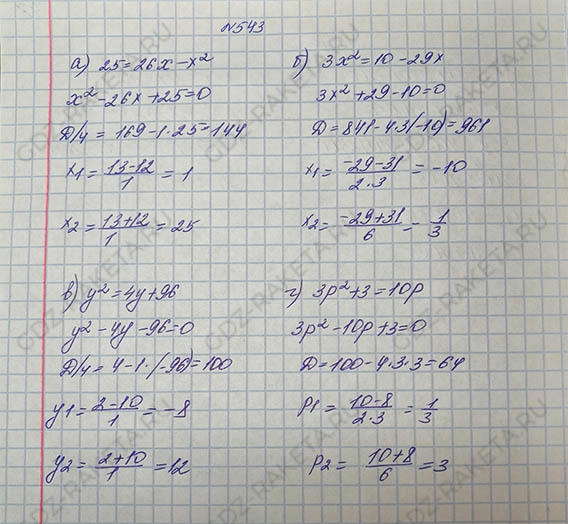 N543
а) 25=26x-x²
x²-26x+25=0
D/4 = 169-1·25=144
x1= (13-12)/1 = 1
x2= (13+12)/1 = 25
б) 3x²=10-29x
3x²+29-10=0
D=841-4·3(-10)=961
x1= (-29-31)/(2·3) = -10
x2= (-29+31)/6 = 1/3
в) y²=4y+96
y²-4y-96=0
D/4= 4-1·(-96)=100
y1= (2-10)/1 = -8
y2= (2+10)/1 =12
г) 3p²+3=10p
3p²-10p+3=0
D=100-4·3·3=64
p1= (10-8)/(2·3) = 1/3
p2= (10+8)/6 =3
GDZ-RAKETA.RU